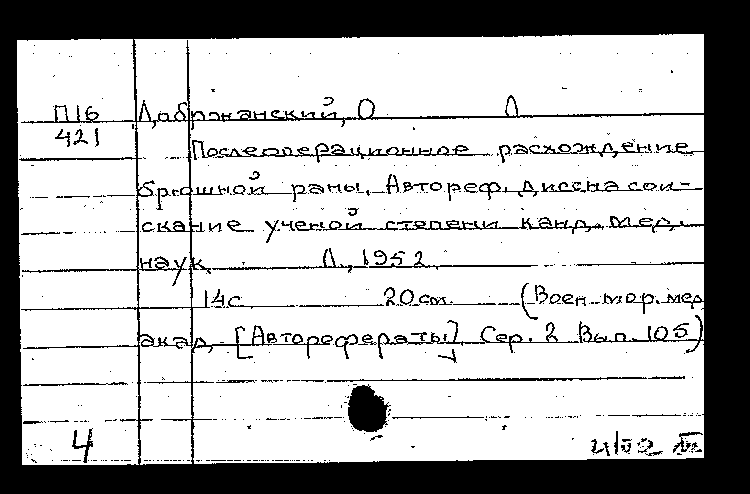 П16 Добржанский, О Л
421 Послеоперационное расхождение
брюшной раны. Автореф. дисс на сои-
скание ученой степени канд. мед.
наук. Л., 1952.
14с 20см. (Воен. мор. мед
акад. [Авторефераты] Сер. 2 Вып. 105)
4